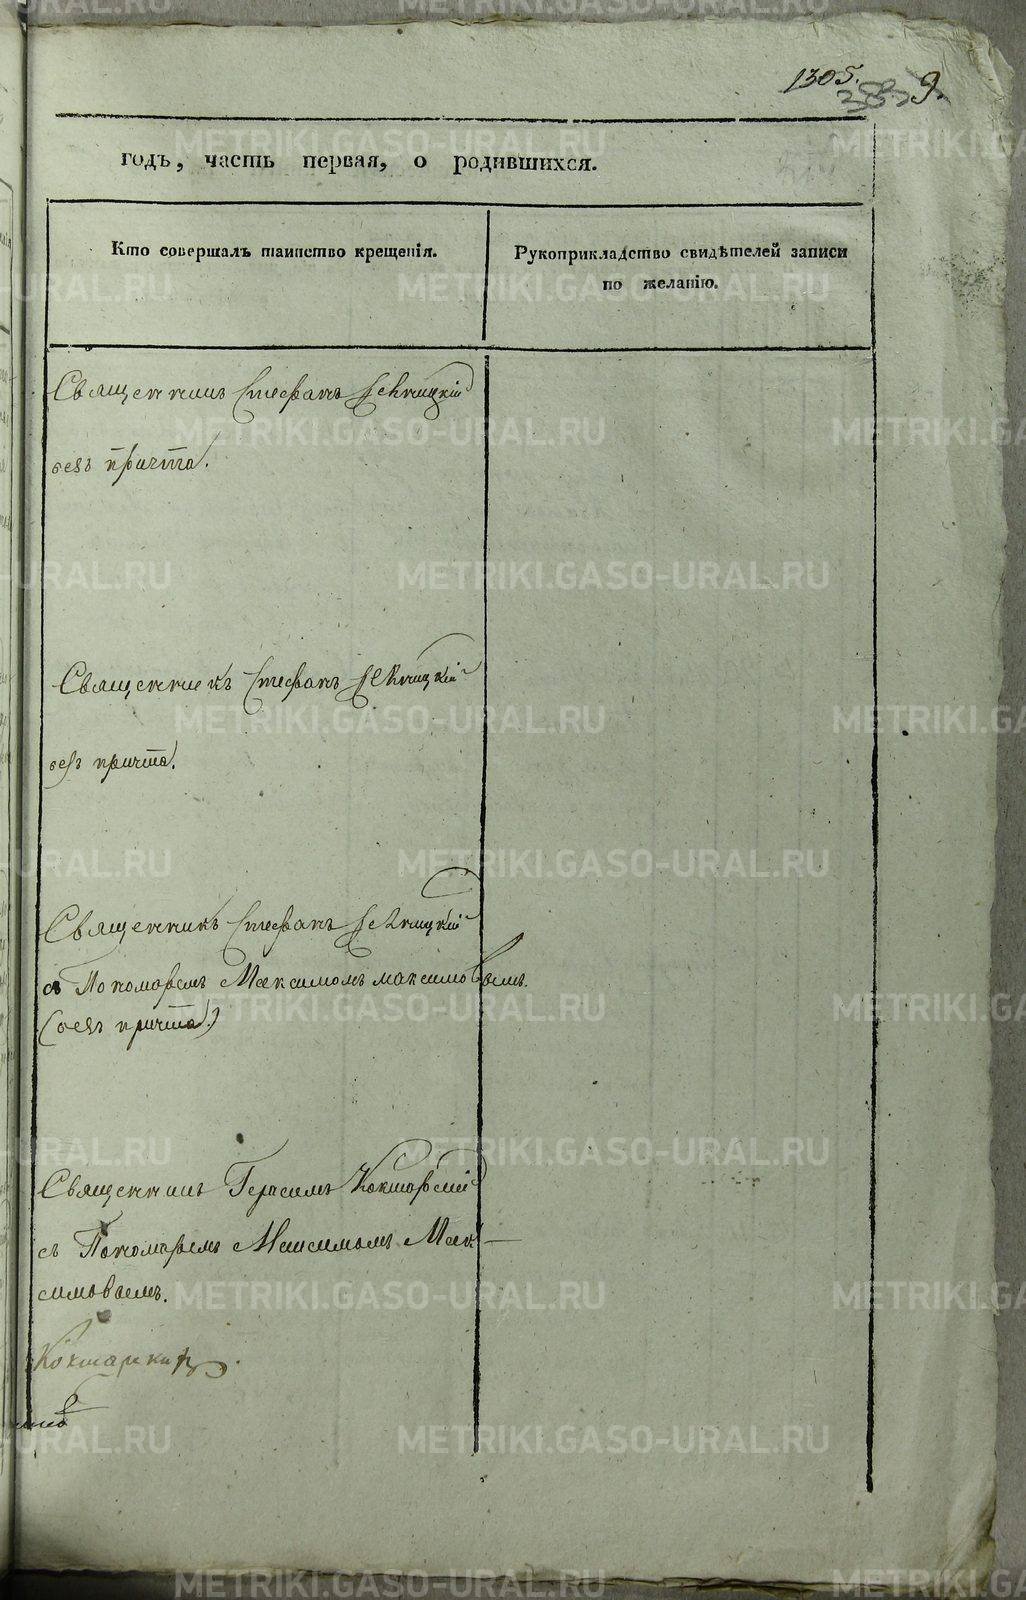 1305.
9.
годъ, часть первая, о родившихся.
Кто совершалъ таинство крещенія.
Рукоприкладство свидѣтелей записи
по желанію.
Священникъ Стефанъ
безъ причта.
Священникъ Стефанъ
безъ причта.
Священникъ Стефанъ
съ Пономаремъ Максимомъ Максимовымъ.
(безъ причта.)
Священникъ Герасимъ Кокшарскій
съ Пономаремъ Максимомъ Мак-
симовымъ.
METRIKI.GASO-URAL.RU